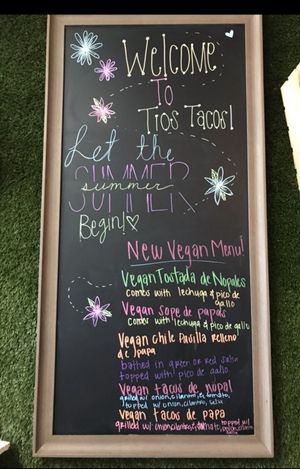 Welcome
To
Tios Tacos!
Let the
SUMMER
summer
Begin!
New Vegan Menu!
Vegan Tostada de Nopales
comes with lechuga & pico de
gallo
Vegan sope de papas
comes w/ lechuga & pico de gallo
Vegan chile Pasilla relleno
de papa
bathed in green or red salsa
topped with pico de gallo
Vegan tacos de nopal
grilled w/ onion, cilantro, & tomato,
topped w/ onion, cilantro,
Vegan tacos de papa
grilled w/ onion, cilantro, & tomate, topped w/
onion, cilantro